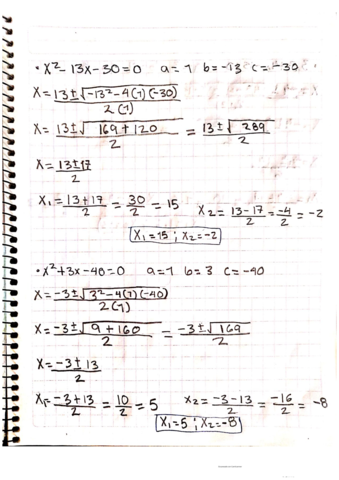 • x² - 13x - 30 = 0   a = 1   b = -13   c = -30
x = 13 ± √(-13² - 4(1)(-30)) / 2(1)
x = 13 ± √(169 + 120) / 2 = 13 ± √289 / 2
x = 13 ± 17 / 2
x₁ = 13 + 17 / 2 = 30 / 2 = 15   x₂ = 13 - 17 / 2 = -4 / 2 = -2
x₁ = 15 ; x₂ = -2
• x² + 3x - 40 = 0   a = 1   b = 3   c = -40
x = -3 ± √(3² - 4(1)(-40)) / 2(1)
x = -3 ± √(9 + 160) / 2 = -3 ± √169 / 2
x = -3 ± 13 / 2
x₁ = -3 + 13 / 2 = 10 / 2 = 5   x₂ = -3 - 13 / 2 = -16 / 2 = -8
x₁ = 5 ; x₂ = -8